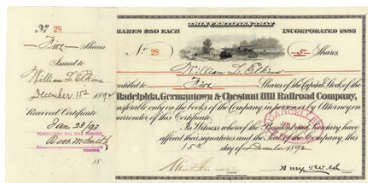 No 28
Five Shares
Issued to
William L. Elkins
December 15th 1892
Received Certificate
Jan 28/97
18
THIS CERTIFIES THAT
SHARES $50 EACH
INCORPORATED 1883
No 28
5 Shares
William L. Elkins
is entitled to Five Shares of the Capital Stock of the
Philadelphia, Germantown & Chestnut Hill Railroad Company,
transferable only on the books of the Company in person or by Attorney on
surrender of this Certificate.
In Witness whereof the President and Secretary have
affixed their signatures and the Seal of the Company this
15th day of December 1892
CANCELLED